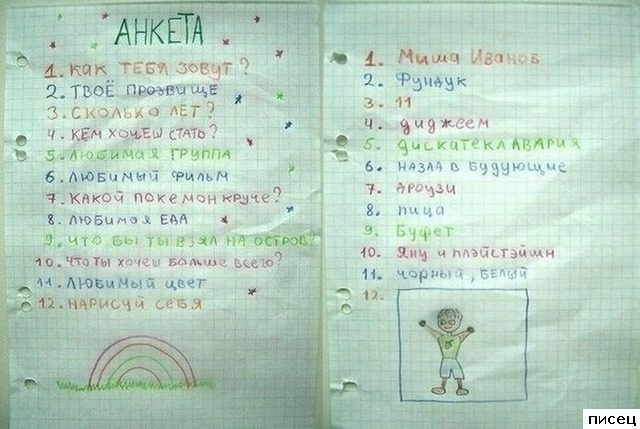 АНКЕТА
1. КАК ТЕБЯ ЗОВУТ?
2. ТВОЁ ПРОЗВИЩЕ
3. СКОЛЬКО ЛЕТ?
4. КЕМ ХОЧЕШ СТАТЬ?
5. ЛЮБИМАЯ ГРУППА
6. ЛЮБИМЫЙ ФИЛЬМ
7. КАКОЙ ПОКЕМОН КРУЧЕ?
8. ЛЮБИМАЯ ЕДА
9. ЧТО БЫ ТЫ ВЗЯЛ НА ОСТРОВ?
10. ЧТО ТЫ ХОЧЕШ БОЛЬШЕ ВСЕГО?
11. ЛЮБИМЫЙ ЦВЕТ
12. НАРИСУЙ СЕБЯ
1. Миша Иванов
2. Фундук
3. 11
4. диджеем
5. ДИСКАТЕКА АВАРИЯ
6. НАЗАД В БУДУЮЩИЕ
7. АРОУЗИ
8. пица
9. Буфет
10. Яну и плэйстэйшн
11. чорный, БЕЛЫЙ
12.
писец